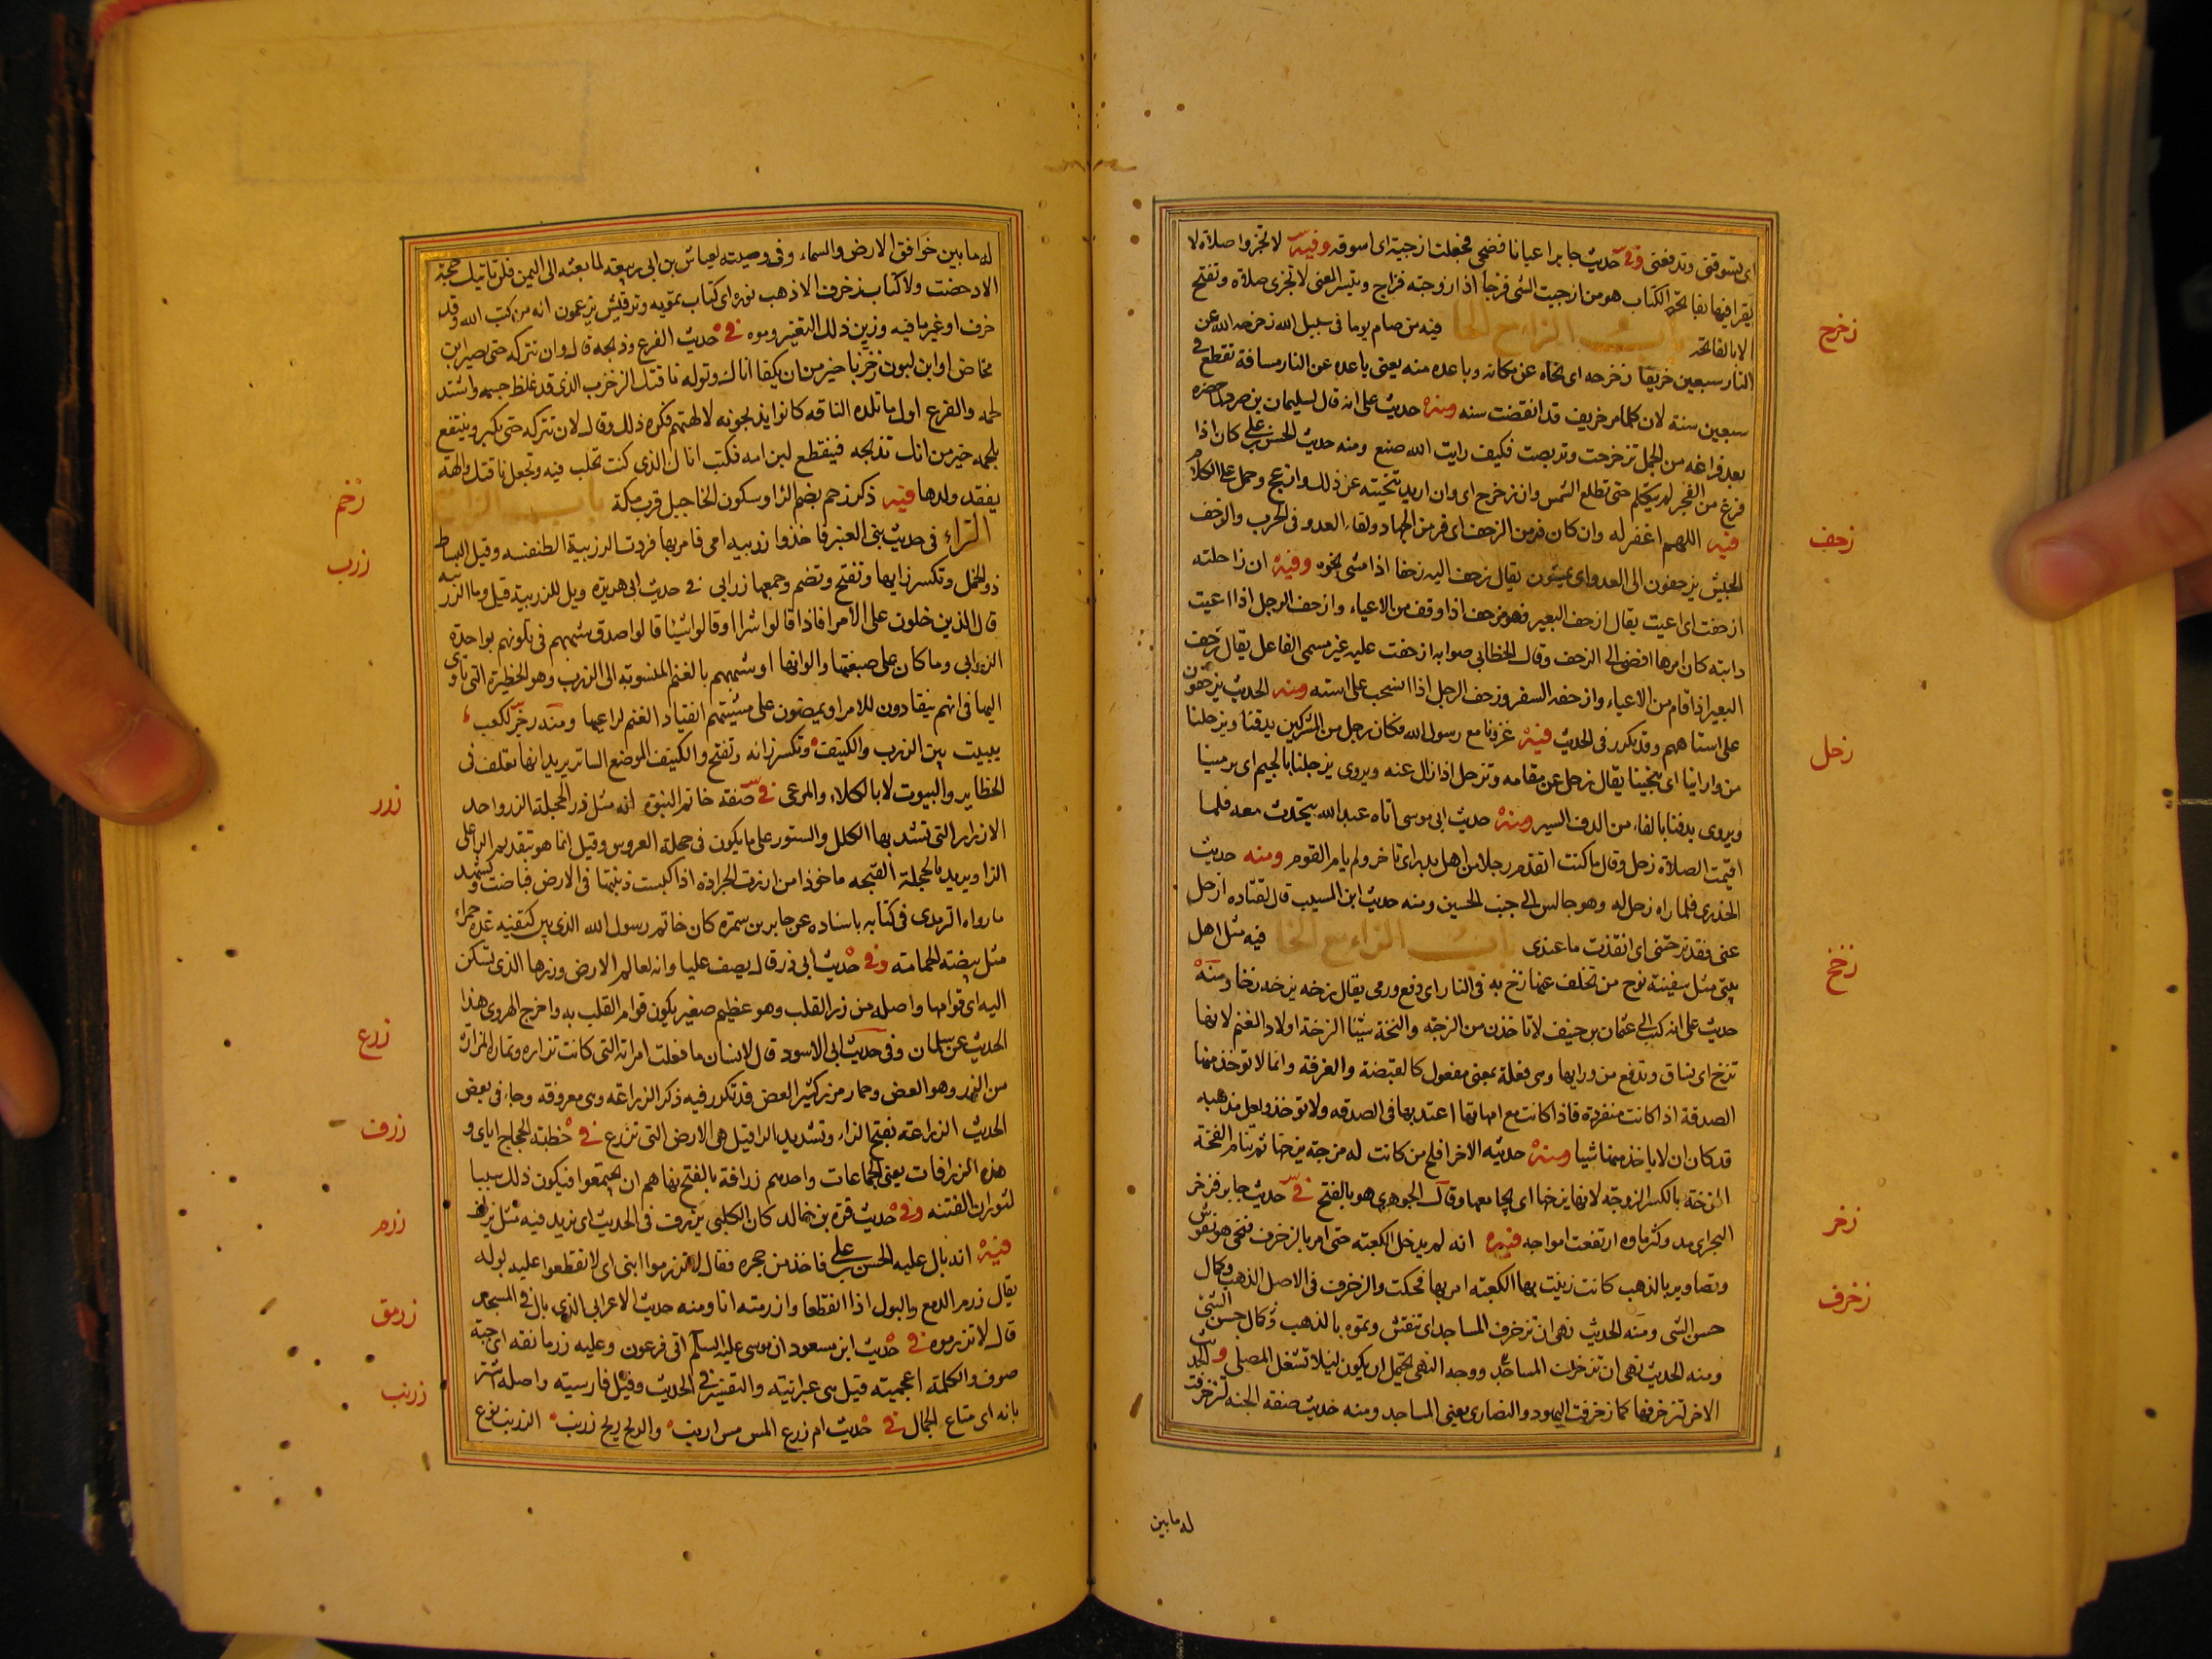 اى تسوقنى وتدفعنى وفى حديث جابر اعيا ناضحى فجعلت ازجيه اى اسوقه وفيه لا تجزو اصلاة لا
يقرا فيها بفاتحة الكتاب هو من ازجيت الشى فزجا اذا روجته فراج وتيسر المعنى لا تجزى صلاة وتفتح
الا بالفاتحة باب الزاء مع الحا فيه من صام يوما فى سبيل الله زحزحه الله عن
زحزح
النار سبعين خريفا زحزحه اى نحاه عن مكانه وباعده منه يعنى باعده عن النار مسافة تقطع فى
سبعين سنة لان كلما مر خريف قد انقضت سنه ومنه حديث على انه قال لسليمان بن صرد لما حضره
بعد فراغه من الجمل تزحزحت وتربصت فكيف رايت الله صنع ومنه حديث الحسن بن على كان اذا
فرغ من الفجر لم يتكلم حتى تطلع الشمس وان زحزح اى وان اريد تنحيته عن ذلك وازعج وحمل على الكلام
فيه اللهم اغفر له وان كان فر من الزحف اى فر من الجهاد ولقاء العدو فى الحرب والزحف
زحف
الجيش يزحفون الى العدو اى يمشون يقال زحف اليه زحفا اذا مشى نحوه وفيه ان راحلته
ازحفت اى اعيت يقال ازحف البعير فهو مزحف اذا وقف من الاعياء وازحف الرجل اذا اعيت
دابته كان امرها افضى الى الزحف وقال الخطابى صوابه ازحفت عليه غير مسمى الفاعل يقال زحف
البعير اذا قام من الاعياء وازحفه السفر وزحف الرجل اذا انسحب على استه ومنه الحديث يزحفون
على استاههم وقد تكرر فى الحديث فيه غزونا مع رسول الله فكان رجل من المشركين يدقنا ويزحلنا
زحل
من ورائنا اى ينحينا يقال زحل عن مقامه وتزحل اذا زال عنه ويروى يزجلنا بالجيم اى يرمينا
ويروى يدفنا بالفاء من الدف السير ومنه حديث ابى موسى اتاه عبد الله يتحدث معه فلما
اقيمت الصلاة زحل وقال ما كنت اتقدم رجلا من اهل بدر اى تاخر ولم يام القوم ومنه حديث
الخدرى فلما راه زحل له وهو جالس الى جنب الحسين ومنه حديث ابن المسيب قال لقتاده ازحل
عنى فقد نزحتنى اى انفذت ما عندى باب الزاء مع الخا فيه مثل اهل
زخخ
بيتى مثل سفينة نوح من تخلف عنها زخ به فى النار اى دفع ورمى يقال زخه يزخه زخا ومنه
حديث على انه كتب الى عثمان بن حنيف لا تاخذن من الزخه والنخة شيئا الزخة اولاد الغنم لانها
تزخ اى تساق وتدفع من ورايها وهى فعلة بمعنى مفعول كالقبضة والغرفة وانما لا توخذ منها
الصدقة اذا كانت منفردة فاذا كانت مع امهاتها اعتد بها فى الصدقه ولا توخذ ولعل مذهبه
قد كان ان لا ياخذ منها شيا ومنه حديثه الاخر افلح من كانت له مزخة يزخها ثم ينام الفخة
المزخة بالكسر الزوجة لانه يزخها اى يجامعها وقال الجوهرى هو بالفتح فى حديث جابر فزخر
زخر
البحر اى مد وكثر ماوه وارتفعت امواجه فيه انه لم يدخل الكعبة حتى امر بالزخرف فنحى هو نقوش
زخرف
وتصاوير بالذهب كانت زينت بها الكعبة امر بها فحكت والزخرف فى الاصل الذهب وكمال
حسن الشى ومنه الحديث نهى ان تزخرف المساجد اى تنقش وتموه بالذهب وكمال حسن الشئ
ومنه الحديث نهى ان تزخرف المساجد ووجه النهى يحتمل ان يكون ليلا تشغل المصلى والحديث
الاخر لتزخرفنها كما زخرفت اليهود والنصارى يعنى المساجد ومنه حديث صفة الجنة لتزخرفت
له ما بين
له ما بين خوافق الارض والسماء وفى وصيته لعياش بن ابى ربيعه لما بعثه الى اليمن فلن تاتيك حجة
الا دحضت ولا كتاب زخرف الا ذهب نوره اى كتاب تمويه وترقيش يزعمون انه من كتب الله وقد
حرف او غير ما فيه وزين ذلك التغيير وموه فى حديث الفرع وذبحه قال وان تتركه حتى يصير ابن
مخاض او ابن لبون زخزبا خير من ان تكفا اناك وتوله ناقتك الزخزب الذى قد غلظ جسمه واشتد
لحمه والفرع اول ما تلده الناقه كانوا يذبحونه لالهتهم فكره ذلك وقال لان تتركه حتى يكبر وينتفع
بلحمه خير من انك تذبحه فينقطع لبن امه فتكب اناك الذى كنت تحلب فيه وتجعل ناقتك والهة
بفقد ولدها فيه ذكر زخم بضم الزا وسكون الخا جبل قرب مكة باب الزاء
زخم
الراء فى حديث بنى العنبر فاخذوا زربيه امى فامر بها فردت الزربية الطنفسه وقيل البساط
زرب
ذو الخمل وتكسر زايها وتفتح وتضم وجمعها زرابى فى حديث ابى هريرة ويل للزربية قيل وما الزربيه
قال الذين يدخلون على الامرا فاذا قالوا شرا او قالوا شيئا قالوا صدق شبههم فى تلونهم بواحدة
الزرابى وما كان على صبغتها والوانها او شبههم بالغنم المنسوبة الى الزرب وهو الحظيرة التى تاوى
اليها فى انهم ينقادون للامرا ويمضون على مشيتهم انقياد الغنم لراعيها ومنه رجز كعب
يبيت بين الزرب والكنيف وتكسر زائه وتفتح والكنيف الموضع الساتر يريد انها تعلف فى
الحظاير والبيوت لا بالكلاء والمرعى فى صفة خاتم النبوة انه مثل زر الحجلة الزر واحد
زرر
الازرار التى تشد بها الكلل والستور على ما يكون فى حجلة العروس وقيل انما هو بتقديم الرا على
الزا ويريد بالحجلة القبجه ماخوذا من ارزت الجرادة اذا كبست ذنبها فى الارض فباضت ويشهد
ما رواه الترمذى فى كتابه باسناده عن جابر بن سمرة كان خاتم رسول الله الذى بين كتفيه غدة حمراء
مثل بيضة الحمامة وفى حديث ابى ذر قال يصف عليا وانه لعالم الارض وزرها الذى تسكن
اليه اى قوامها واصله من زر القلب وهو عظيم صغير يكون قوام القلب به واخرج الهروى هذا
الحديث عن سلمان وفى حديث ابى الاسود قال لانسان ما فعلت امراته التى كانت تزاره وتماره المزارة
من الزر وهو العض وحمار مزر كثير العض قد تكرر فيه ذكر الزراعه وهى معروفه وجاء فى بعض
زرع
الحديث الزراعة بفتح الزاء وتشديد الرا قيل هى الارض التى تزرع فى خطبة الحجاج اياى و
زرف
هذه الزرافات يعنى الجماعات واحدهم زرافة بالفتح نهاهم ان يجتمعوا فيكون ذلك سببا
لثوران الفتنه وفى حديث قرة بن خالد كان الكلبى يزرف فى الحديث اى يزيد فيه مثل يزلف
فيه انه بال عليه الحسن بن على فاخذ من حجره فقال لا تزرموا ابنى اى لا تقطعوا عليه بوله
زرم
يقال زرم الدمع والبول اذا انقطعا وازرمته انا ومنه حديث الاعرابى الذى بال فى المسجد
قال لا تزرموه فى حديث ابن مسعود ان موسى عليه السلام اتى فرعون وعليه زرمانقه اى جبة
زرمق
صوف والكلمة اعجمية قيل هى عبرانية والتفسير فى الحديث وقيل فارسية واصله اشتر
بانه اى متاع الجمال فى حديث ام زرع المس مس ارنب والريح ريح زرنب الزرنب نوع
زرنب